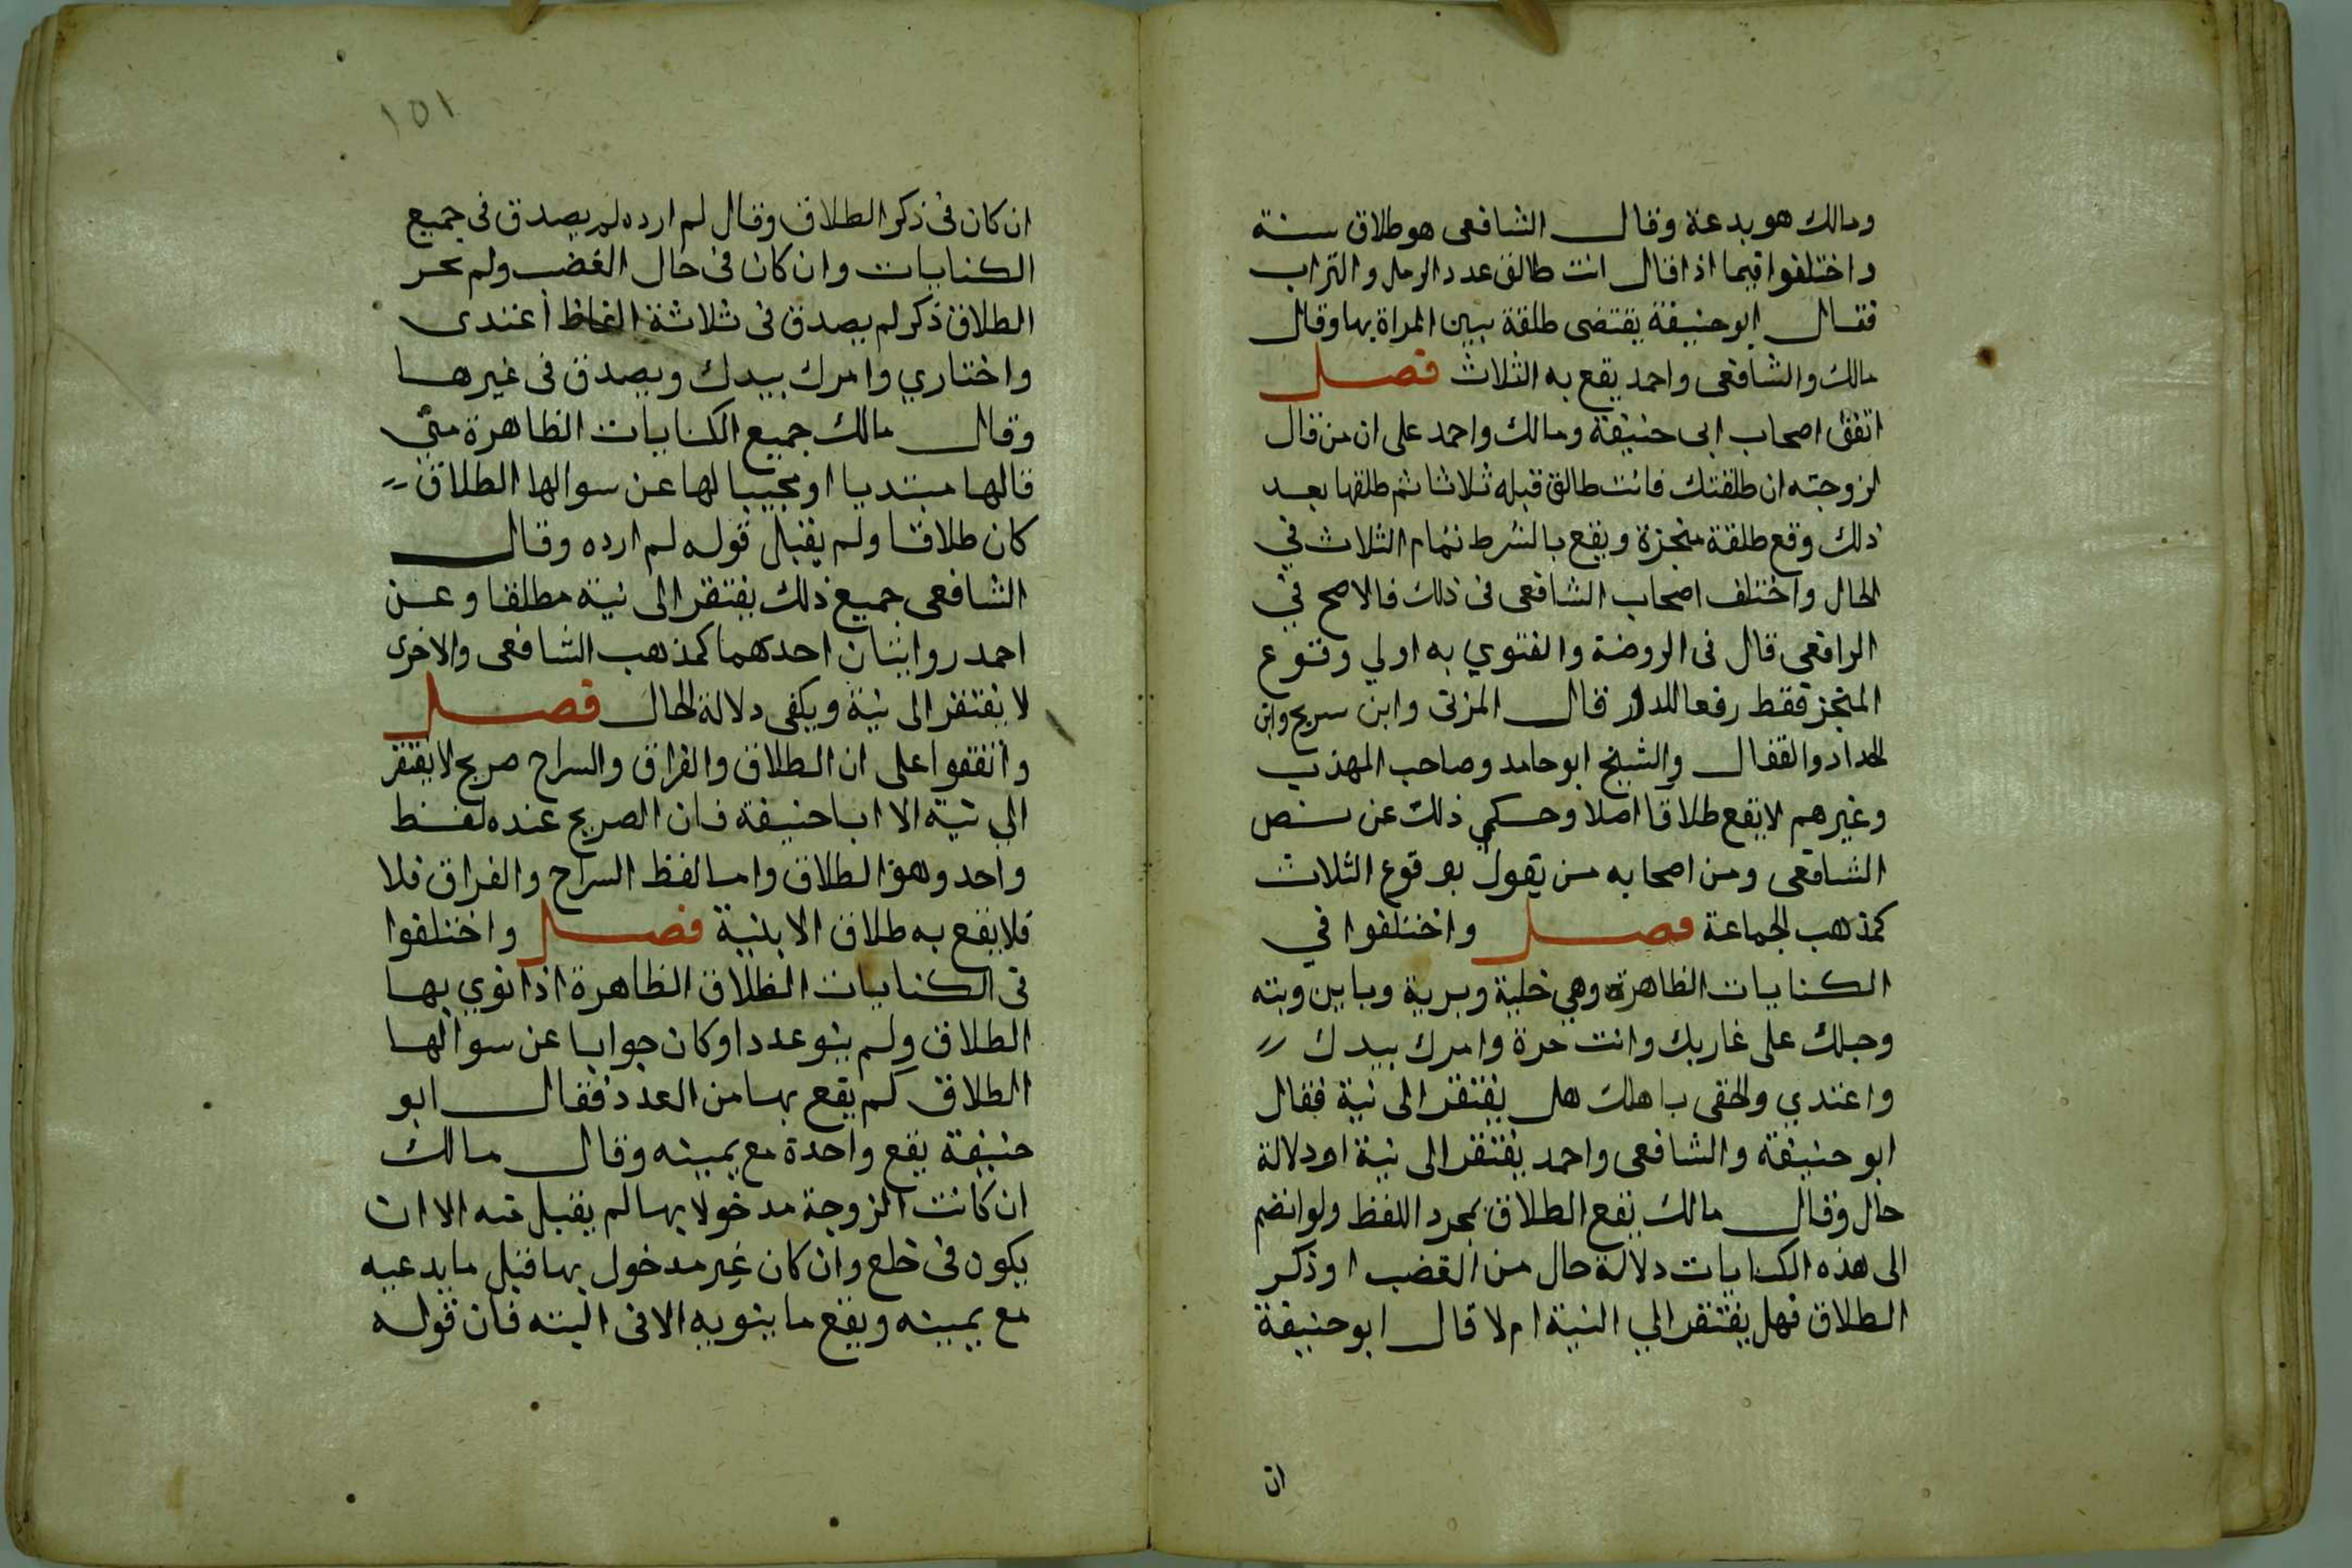 ومالك هو بدعة وقال الشافعى هو طلاق سنة
واختلفوا فيما اذا قال انت طالق عدد الرمل والتراب
فقال ابو حنيفة يقتضى طلقة يبين المراة بها وقال
مالك والشافعى واحمد يقع به الثلاث فصل
اتفق اصحاب ابى حنيفة ومالك واحمد على ان من قال
لزوجته ان طلقتك فانت طالق قبله ثلاثا ثم طلقها بعد
ذلك وقع طلقة منجزة ويقع بالشرط تمام الثلاث في
الحال واختلف اصحاب الشافعى فى ذلك فالاصح في
الرافعى قال فى الروضة والفتوي به اولي وقوع
المنجز فقط رفعا للدور قال المزنى وابن سريج وابن
الحداد والقفال والشيخ ابو حامد وصاحب المهذب
وغيرهم لا يقع طلاقا اصلا وحكي ذلك عن نص
الشافعى ومن اصحابه من يقول بوقوع الثلاث
كمذهب الجماعة فصل واختلفوا في
الكنايات الظاهرة وهي خلية وبرية وباين وبته
وحبلك على غاربك وانت حرة وامرك بيدك
واعتدي والحقى باهلك هل يفتقر الى نية فقال
ابو حنيفة والشافعى واحمد يفتقر الى نية او دلالة
حال وقال مالك يقع الطلاق بمجرد اللفظ ولو انضم
الى هذه الكنايات دلالة حال من الغضب او ذكر
الطلاق فهل يفتقر الي النية ام لا قال ابو حنيفة
ان
١٥١
ان كان فى ذكر الطلاق وقال لم ارده لم يصدق فى جميع
الكنايات وان كان فى حال الغضب ولم يجر
الطلاق ذكر لم يصدق فى ثلاثة الفاظ اعتدى
واختاري وامرك بيدك ويصدق فى غيرها
وقال مالك جميع الكنايات الظاهرة متي
قالها مبتديا او مجيبا لها عن سوالها الطلاق
كان طلاقا ولم يقبل قوله لم ارده وقال
الشافعى جميع ذلك يفتقر الى نية مطلقا وعن
احمد روايتان احدهما كمذهب الشافعى والاخرى
لا يفتقر الى نية ويكفى دلالة الحال فصل
واتفقوا على ان الطلاق والفراق والسراح صريح لا يفتقر
الي نية الا ابا حنيفة فان الصريح عنده لفظ
واحد وهو الطلاق واما لفظ السراح والفراق فلا
فلا يقع به طلاق الا بنية فصل واختلفوا
فى الكنايات الطلاق الظاهرة اذا نوي بها
الطلاق ولم ينو عددا وكان جوابا عن سوالها
الطلاق كم يقع بها من العدد فقال ابو
حنيفة يقع واحدة مع يمينه وقال مالك
ان كانت الزوجة مدخولا بها لم يقبل منه الا ان
يكون فى خلع وان كان غير مدخول بها قبل ما يدعيه
مع يمينه ويقع ما ينويه الا فى البته فان قوله